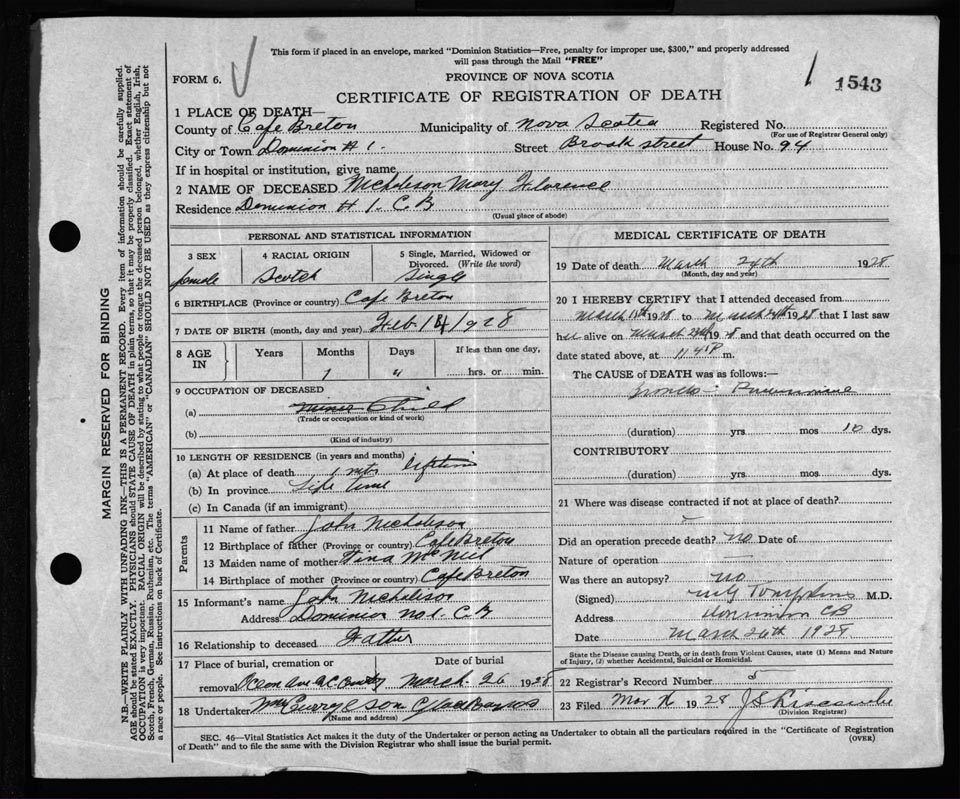 This form if placed in an envelope, marked "Dominion Statistics—Free, penalty for improper use, $300," and properly addressed
will pass through the Mail "FREE"
FORM 6.
PROVINCE OF NOVA SCOTIA
1543
CERTIFICATE OF REGISTRATION OF DEATH
1 PLACE OF DEATH—
County of Cape Breton Municipality of Nova Scotia Registered No.
(For use of Registrar General only)
City or Town Dominion # 1. Street Brook street House No. 94
If in hospital or institution, give name
2 NAME OF DECEASED Nicholson Mary Florence
Residence Dominion # 1. C. B
(Usual place of abode)
PERSONAL AND STATISTICAL INFORMATION
3 SEX
female
4 RACIAL ORIGIN
Scotch
5 Single, Married, Widowed or
Divorced. (Write the word)
Single
6 BIRTHPLACE (Province or country) Cape Breton
7 DATE OF BIRTH (month, day and year) Feb. 14 1928
8 AGE
IN
Years
Months
1
Days
If less than one day,
hrs. or min.
9 OCCUPATION OF DECEASED
(a) Child
(Trade or occupation or kind of work)
(b)
(Kind of industry)
10 LENGTH OF RESIDENCE (in years and months)
(a) At place of death lifetime
(b) In province Life time
(c) In Canada (if an immigrant)
Parents
11 Name of father John Nicholson
12 Birthplace of father (Province or country) Cape Breton
13 Maiden name of mother Tina McNeil
14 Birthplace of mother (Province or country) Cape Breton
15 Informant's name John Nicholson
Address Dominion No 1. C. B
16 Relationship to deceased Father
17 Place of burial, cremation or
removal Ocean Ave
Date of burial
March. 26 1928
18 Undertaker Curry & Son Glace Bay NS
(Name and address)
MEDICAL CERTIFICATE OF DEATH
19 Date of death March 24th 1928
(Month, day and year)
20 I HEREBY CERTIFY that I attended deceased from
March 1928 to March 24th 1928 that I last saw
her alive on March 1928 and that death occurred on the
date stated above, at m.
The CAUSE of DEATH was as follows:—
Broncho - Pneumonia
(duration) yrs mos 10 dys.
CONTRIBUTORY
(duration) yrs. mos dys.
21 Where was disease contracted if not at place of death?
Did an operation precede death? no Date of
Nature of operation —
Was there an autopsy? no
(Signed) Tompkins M.D.
Address Dominion CB
Date March 26th 1928
State the Disease causing Death, or in death from Violent Causes, state (1) Means and Nature
of Injury, (2) whether Accidental, Suicidal or Homicidal.
22 Registrar's Record Number 5
23 Filed 1928
(Division Registrar)
SEC. 46—Vital Statistics Act makes it the duty of the Undertaker or person acting as Undertaker to obtain all the particulars required in the "Certificate of Registration
of Death" and to file the same with the Division Registrar who shall issue the burial permit.
(OVER)
MARGIN RESERVED FOR BINDING
N.B.—WRITE PLAINLY WITH UNFADING INK—THIS IS A PERMANENT RECORD. Every item of information should be carefully supplied.
AGE should be stated EXACTLY. PHYSICIANS should STATE CAUSE OF DEATH in plain terms, so that it may be properly classified. Exact statement of
OCCUPATION is very important. RACIAL ORIGIN will be described by stating to what people or tongue the deceased person belonged, whether English, Irish,
Scotch, French, German, Russian, Ruthenian, etc. The terms "AMERICAN" or "CANADIAN" SHOULD NOT BE USED as they express citizenship but not
a race or people. See instructions on back of Certificate.